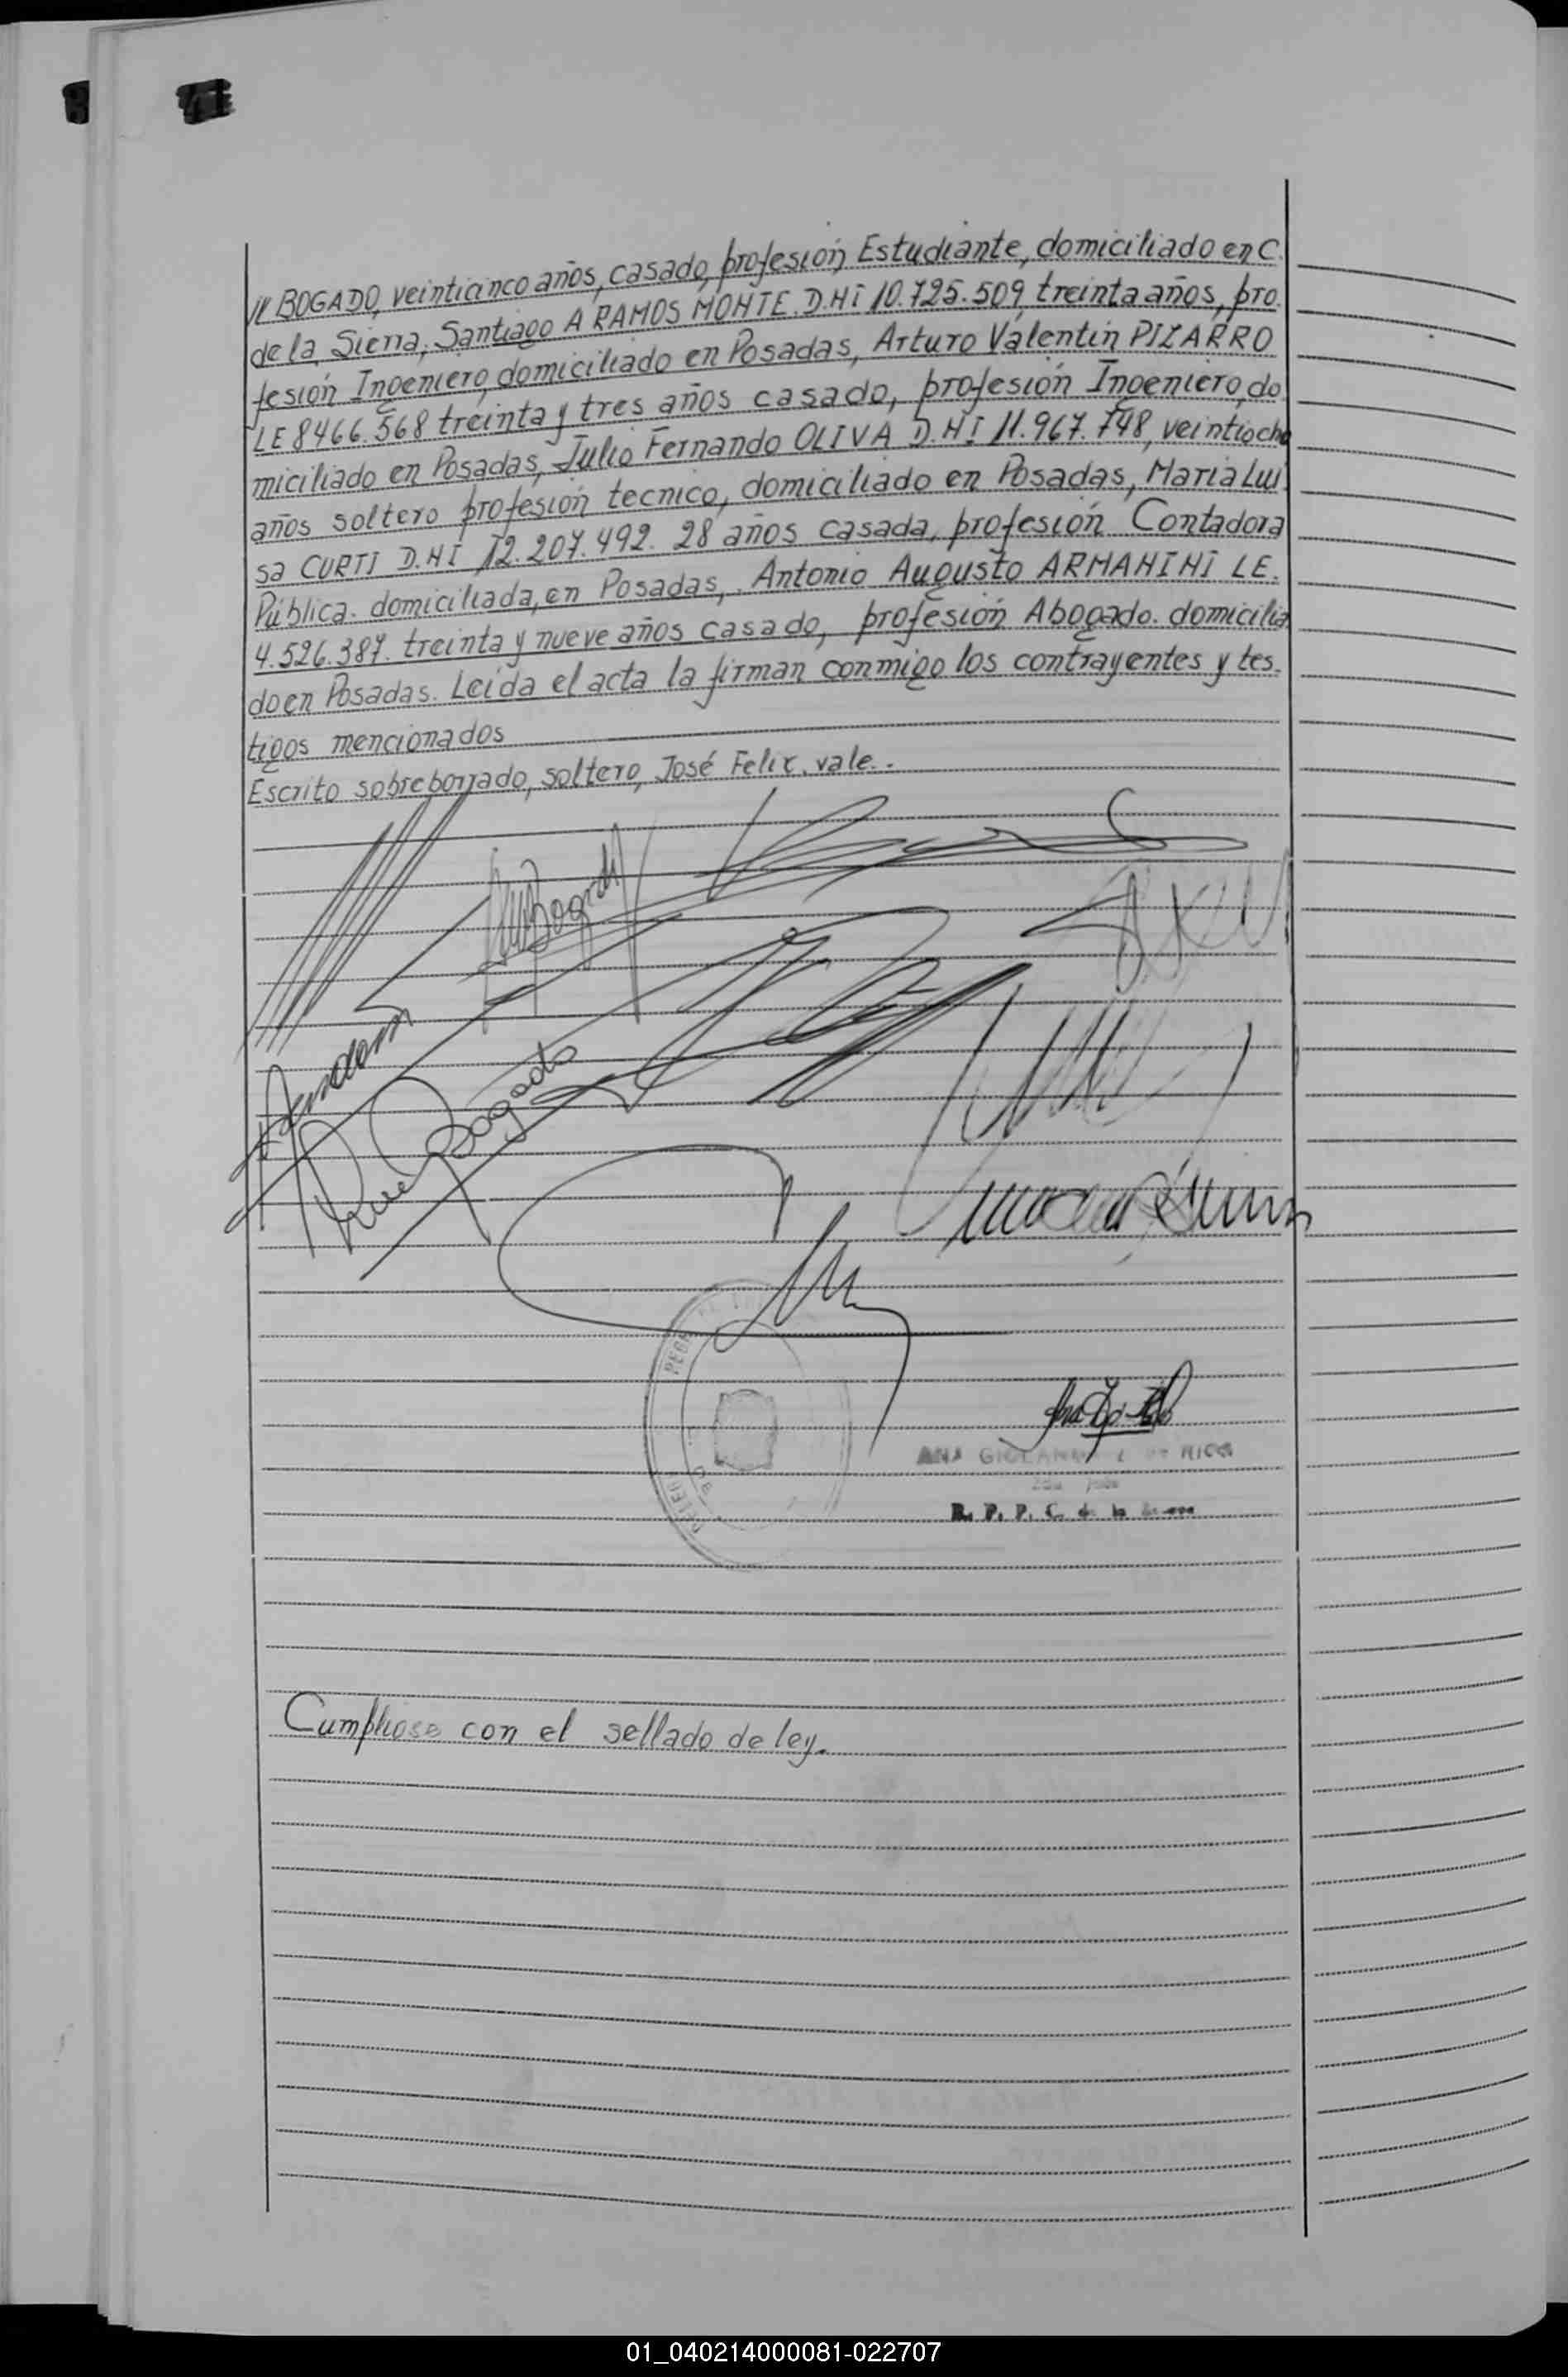 // BOGADO, veinticinco años, casado, profesión Estudiante, domiciliado en C.
de la Sierra, Santiago A RAMOS MONTE. D.NI 10.725.509, treinta años, pro.
fesión Ingeniero, domiciliado en Posadas, Arturo Valentin PIZARRO
LE 8466.568 treinta y tres años casado, profesión Ingeniero, do
miciliado en Posadas, Julio Fernando OLIVA D.NI 11.967.748, veintiocho
años soltero profesión tecnico, domiciliado en Posadas, Maria Lui
sa CURTI D.NI 12.207.492. 28 años casada, profesión Contadora
Pública. domiciliada, en Posadas, Antonio Augusto ARMANINI LE.
4.526.387. treinta y nueve años casado, profesión Abogado. domicilia
do en Posadas. Leida el acta la firman conmigo los contrayentes y tes-
tigos mencionados
Escrito sobreborrado, soltero, José Felix, vale..
Bogado
ANA RICO
R. P. P. C. de la
Cumpliose con el sellado de ley.
01_040214000081-022707